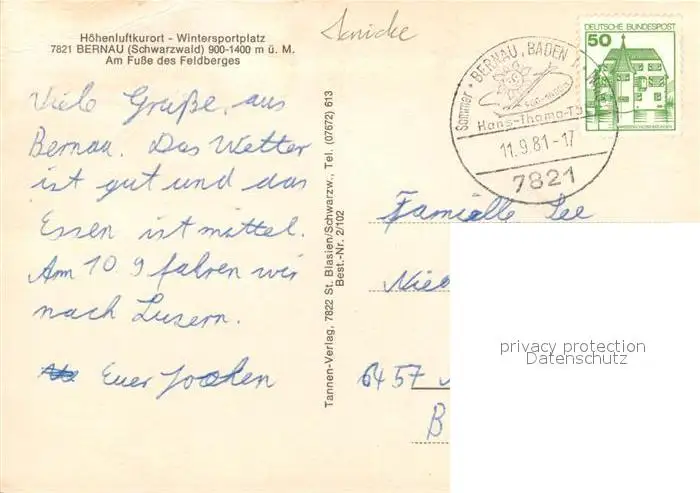 Höhenluftkurort - Wintersportplatz
7821 BERNAU (Schwarzwald) 900-1400 m ü. M.
Am Fuße des Feldberges
Viele Grüße, aus
Bernau. Das Wetter
ist gut und das
Essen ist mittel.
Am 10 9 fahren wir
nach Luzern.
Euer Jochen
Tannen-Verlag, 7822 St. Blasien/Schwarzw., Tel. (07672) 613
Best.-Nr. 2/102
Sommer + BERNAU, BADEN
Hans-Thoma-
11.9.81-17
7821
DEUTSCHE BUNDESPOST
50
Famielle
Nie
6457
B
privacy protection
Datenschutz